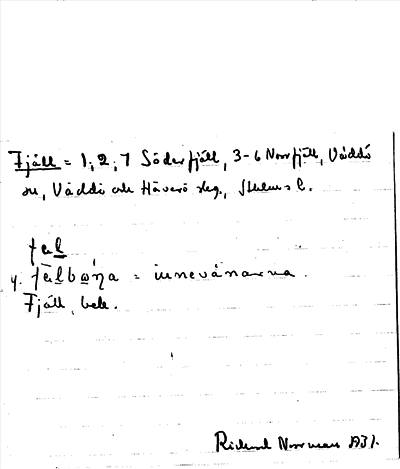 Fjäll = 1, 2, 7 Söderfjäll, 3-6 Norrfjäll, Väddö
sn, Väddö och Häverö slg, Sthlms l.
fal
y. falbωŋa = innevånarna.
Fjäll, bek.
Rickard Norrman 1931.